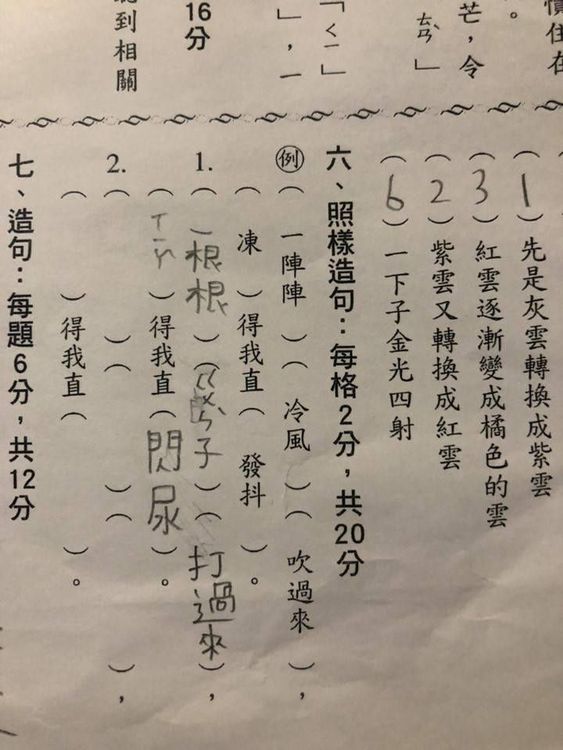 慣住在
。
芒，令
」
「ㄑㄧ」
」，一
16分
到相關
（1）先是灰雲轉換成紫雲
（3）紅雲逐漸變成橘色的雲
（2）紫雲又轉換成紅雲
（6）一下子金光四射
六、照樣造句：每格2分，共20分
例（一陣陣）（冷風）（吹過來），
（凍）得我直（發抖）。
1.（一根根）（ㄍㄨㄣˋ子）（打過來），
（）得我直（閃尿）。
2.（）（）（），
（）得我直（）。
七、造句：每題6分，共12分